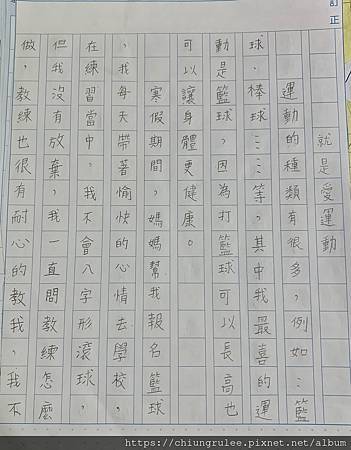 訂正
就是愛運動
運動的種類有很多，例如：籃
球、棒球……等，其中我最喜的運
動是籃球，因為打籃球可以長高也
可以讓身體更健康。
寒假期間，媽媽幫我報名籃球
，我每天帶著愉快的心情去學校，
在練習當中，我不會八字形滾球，
但我沒有放棄，我一直問教練怎麼
做，教練也很有耐心的教我，我不
https://chiungrulee.pixnet.net/album